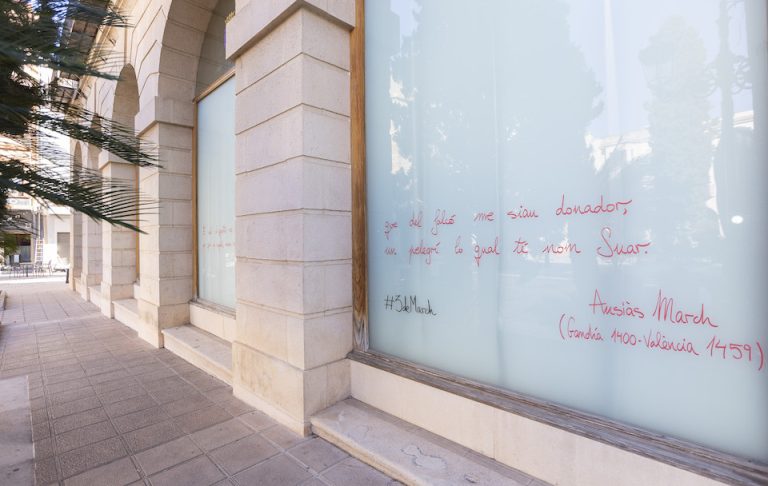 que del falcó me siau donador,
un pelegrí lo qual té nom Suar.
#3deMarch
Ausiàs March
(Gandía 1400-València 1459)